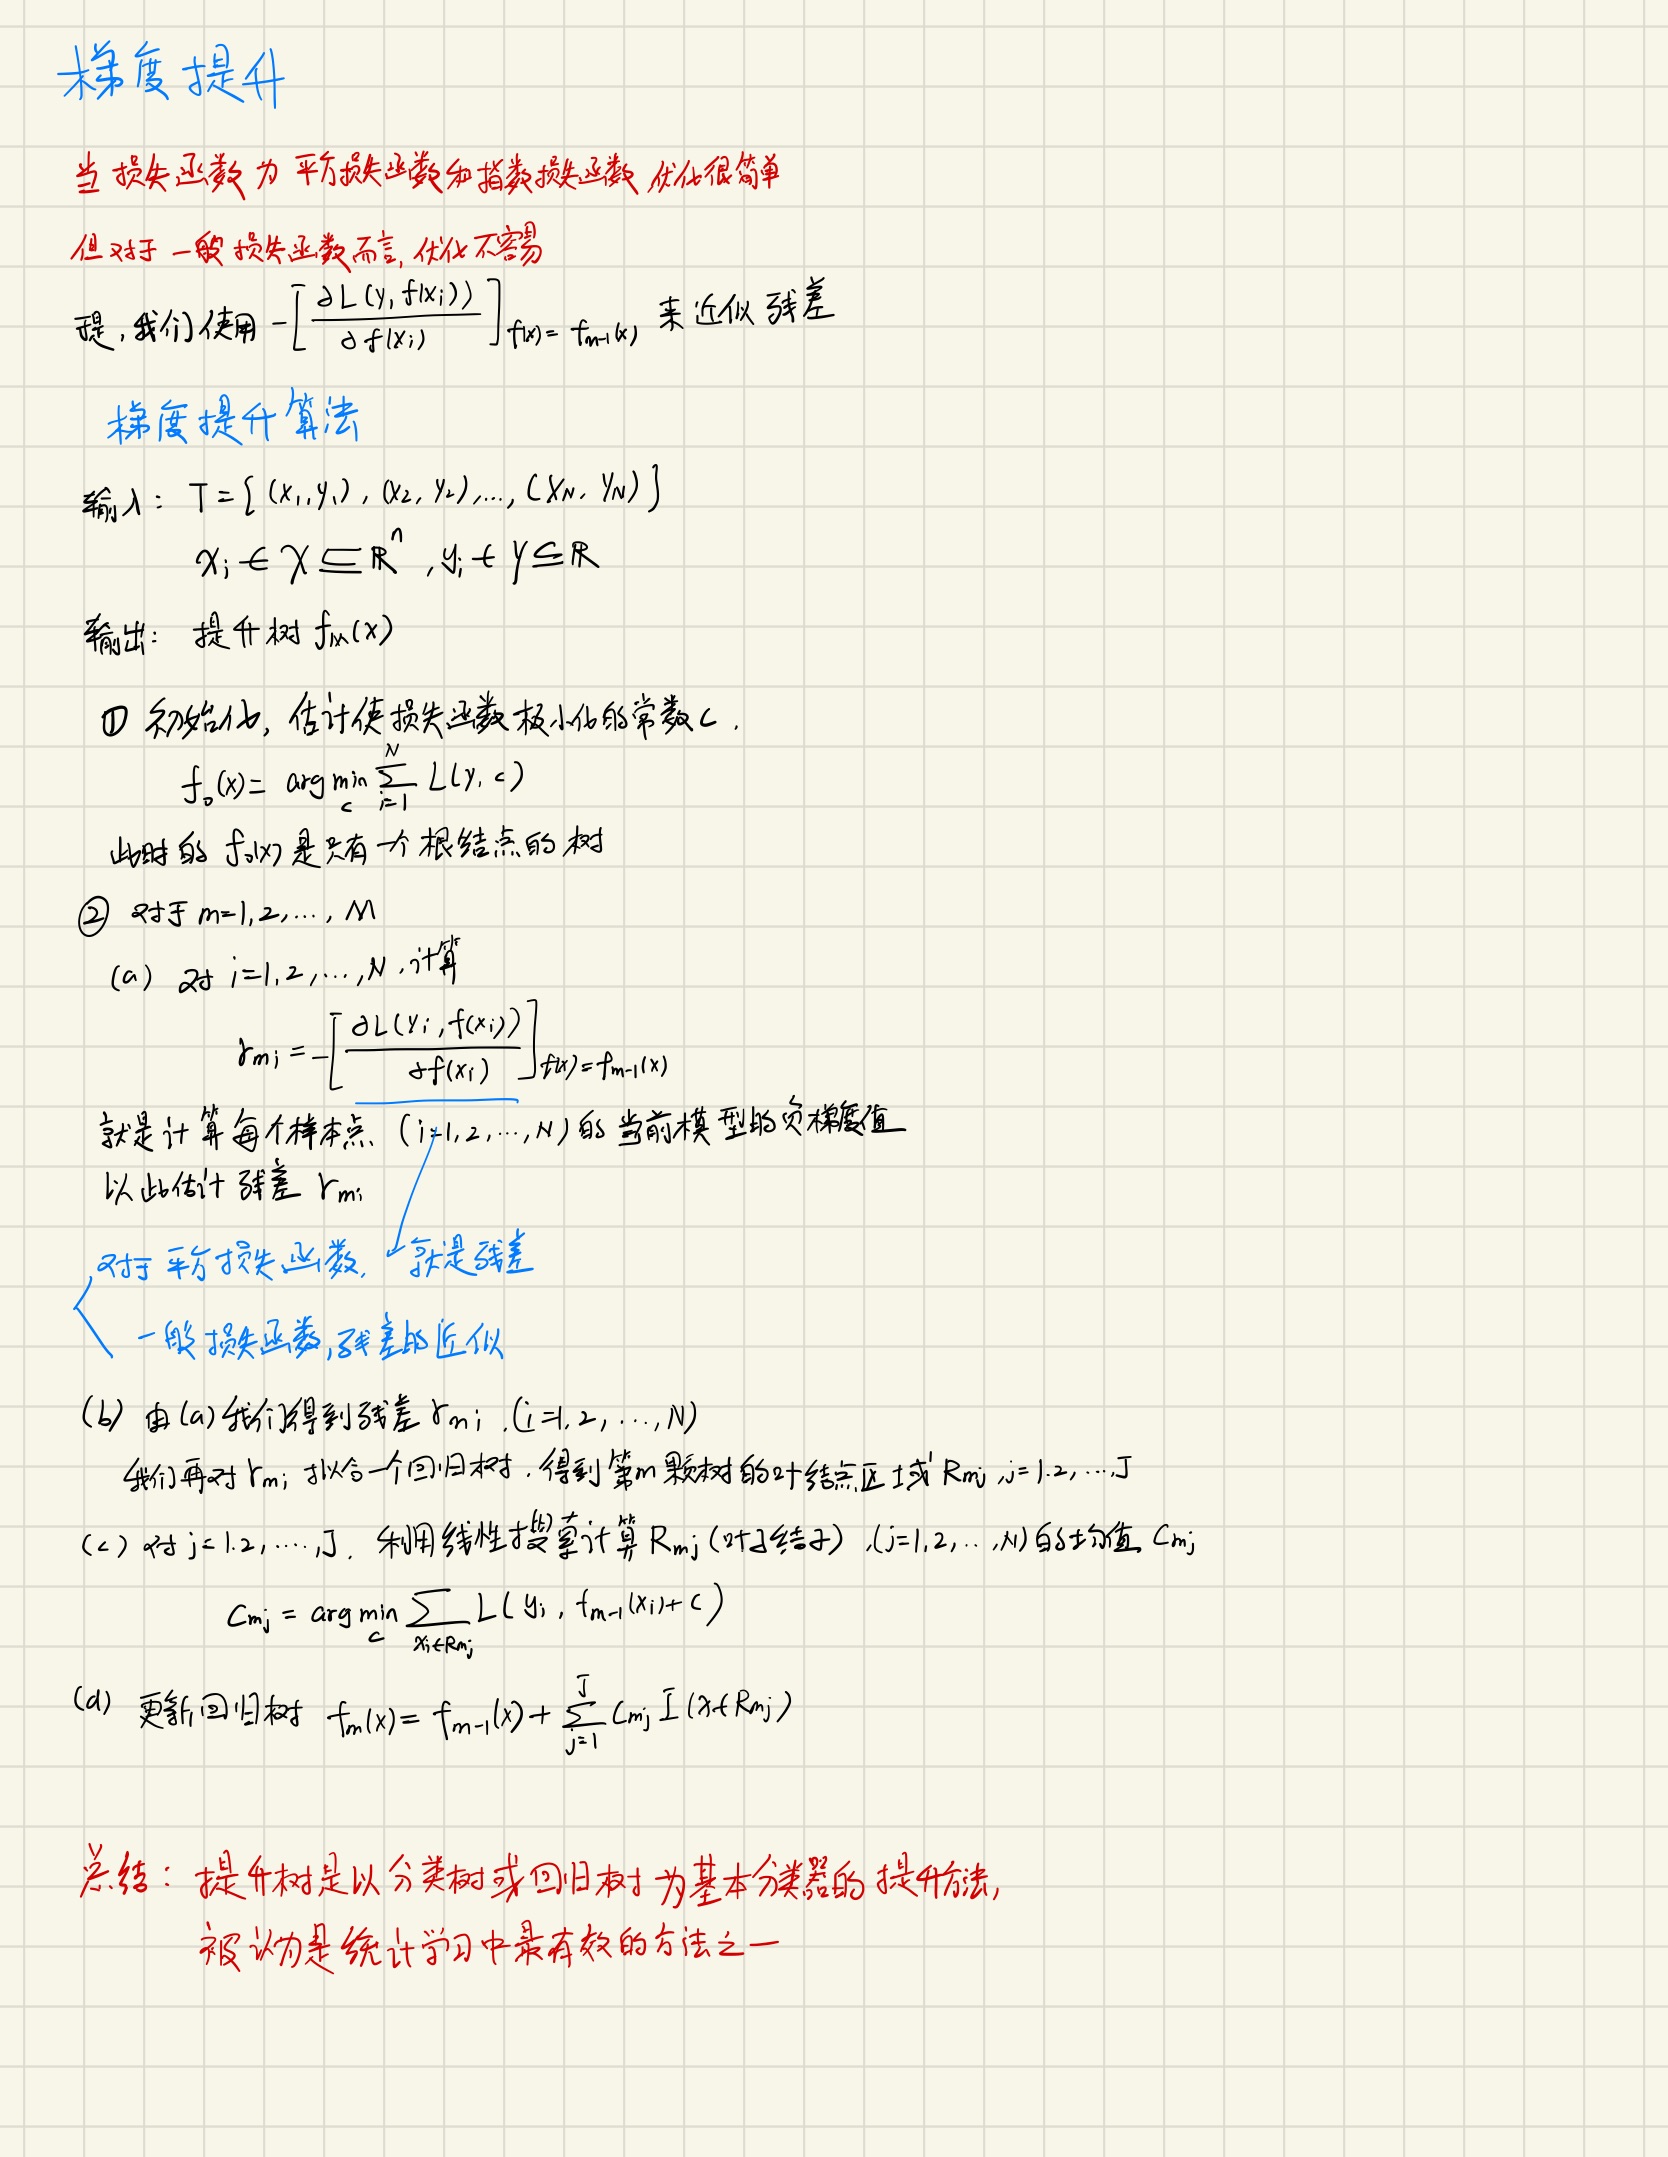 梯度提升
当损失函数为平方损失函数和指数损失函数优化很简单
但对于一般损失函数而言,优化不容易
是,我们使用 -[∂L(y, f(xi)) / ∂f(xi)] f(x) = fm-1(x) 来近似残差
梯度提升算法
输入: T = {(x1, y1), (x2, y2), ..., (xN, yN)}
xi ∈ χ ⊆ R^n, yi ∈ y ⊆ R
输出: 提升树 fM(x)
① 初始化, 估计使损失函数极小化的常数c.
f0(x) = arg min_c Σ_{i=1}^N L(y, c)
此时的 f0(x) 是只有一个根结点的树
② 对于 m=1,2,...,M
(a) 对 i=1,2,...,N,计算
rmi = -[∂L(yi, f(xi)) / ∂f(xi)] f(x) = fm-1(x)
就是计算每个样本点 (i=1,2,...,N)的当前模型的负梯度值
以此估计残差 rmi
对于平方损失函数, 就是残差
一般损失函数,残差的近似
(b) 由(a)我们得到残差 rmi, (i=1,2,...,N)
我们再对 rmi 拟合一个回归树, 得到第m颗树的叶结点区域 Rmj, j=1,2,...,J
(c) 对 j=1,2,...,J, 利用线性搜索计算 Rmj (叶子结子), (j=1,2,...,N)的均值 Cmj
Cmj = arg min_c Σ_{xi∈Rmj} L(yi, fm-1(xi)+c)
(d) 更新回归树 fm(x) = fm-1(x) + Σ_{j=1}^J Cmj I(x∈Rmj)
总结: 提升树是以分类树或回归树为基本分类器的提升方法,
被认为是统计学习中最有效的方法之一